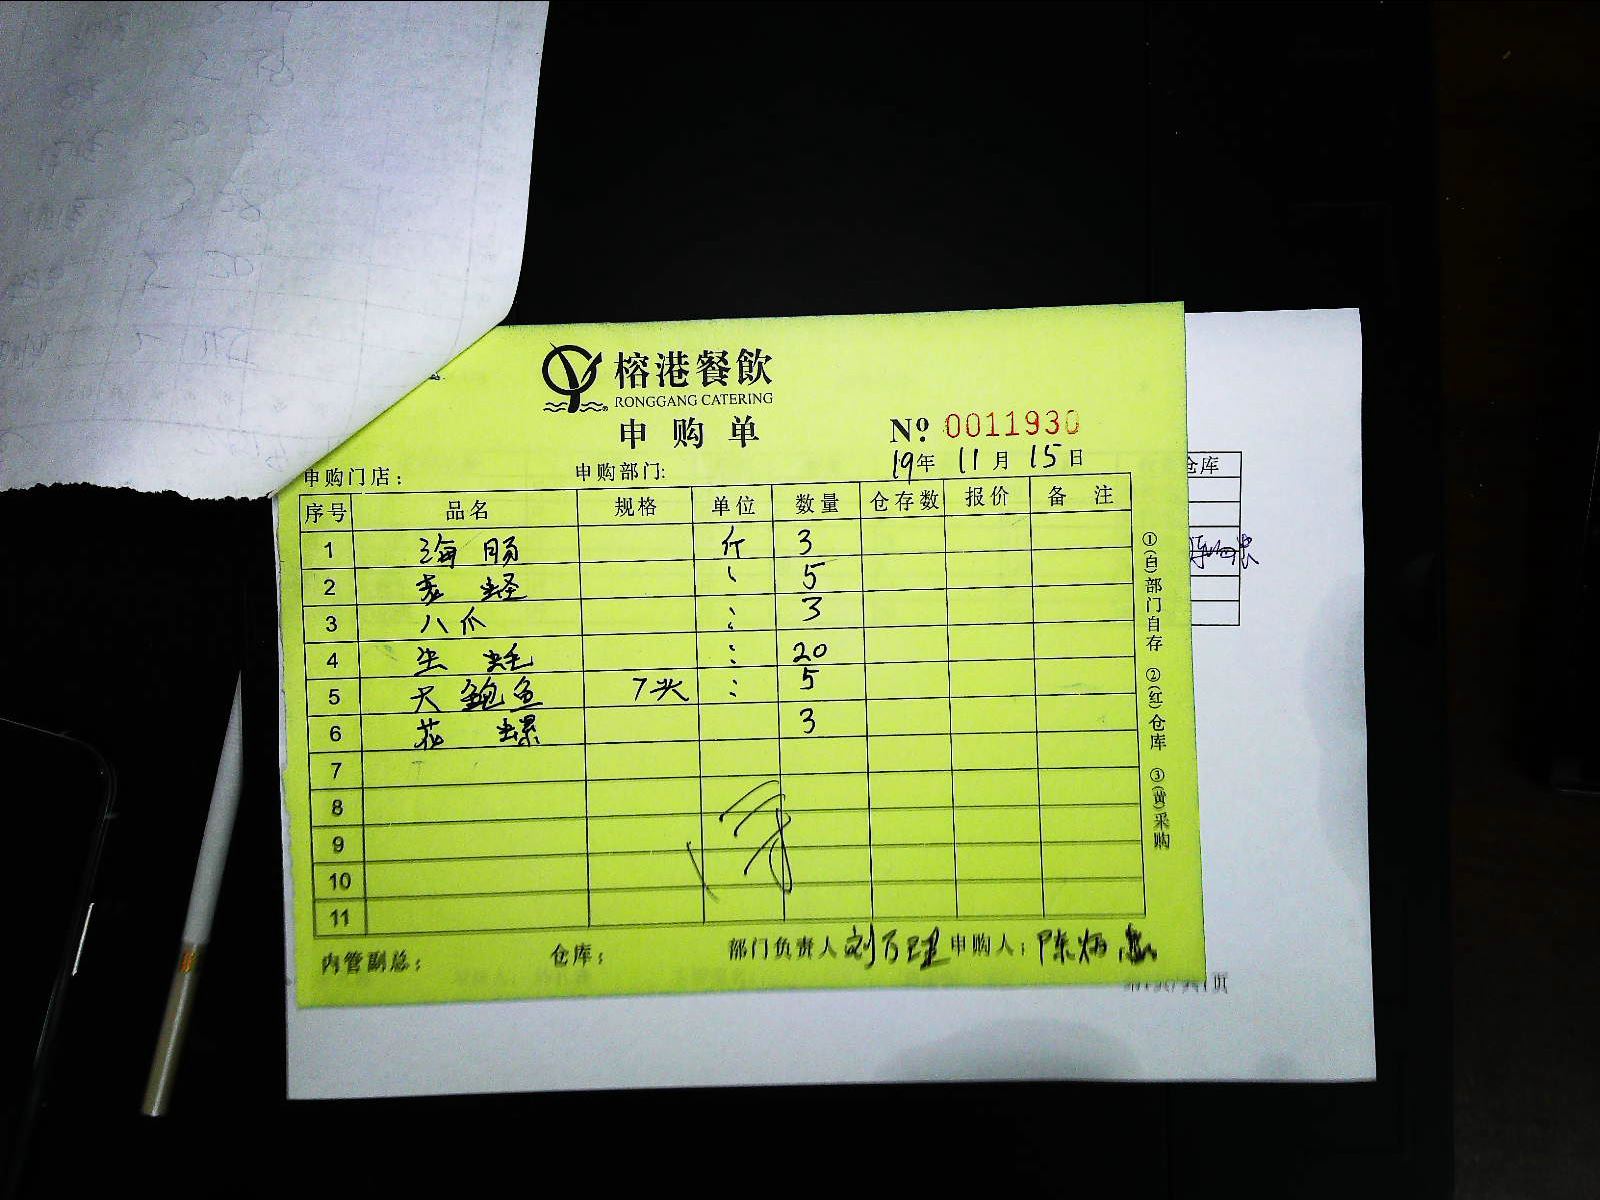 榕港餐飲
RONGGANG CATERING
申购单
№ 0011930
申购门店： 申购部门: 19年 11月 15日
序号 品名 规格 单位 数量 仓存数 报价 备 注
1 海肠 斤 3
2 5
3 八爪 3
4 20
5 大鲍鱼 7头 5
6 花螺 3
7
8
9
10
11
内管副总： 仓库： 部门负责人 申购人：陈炳
①(白)部门自存 ②(红)仓库 ③(黄)采购
仓库